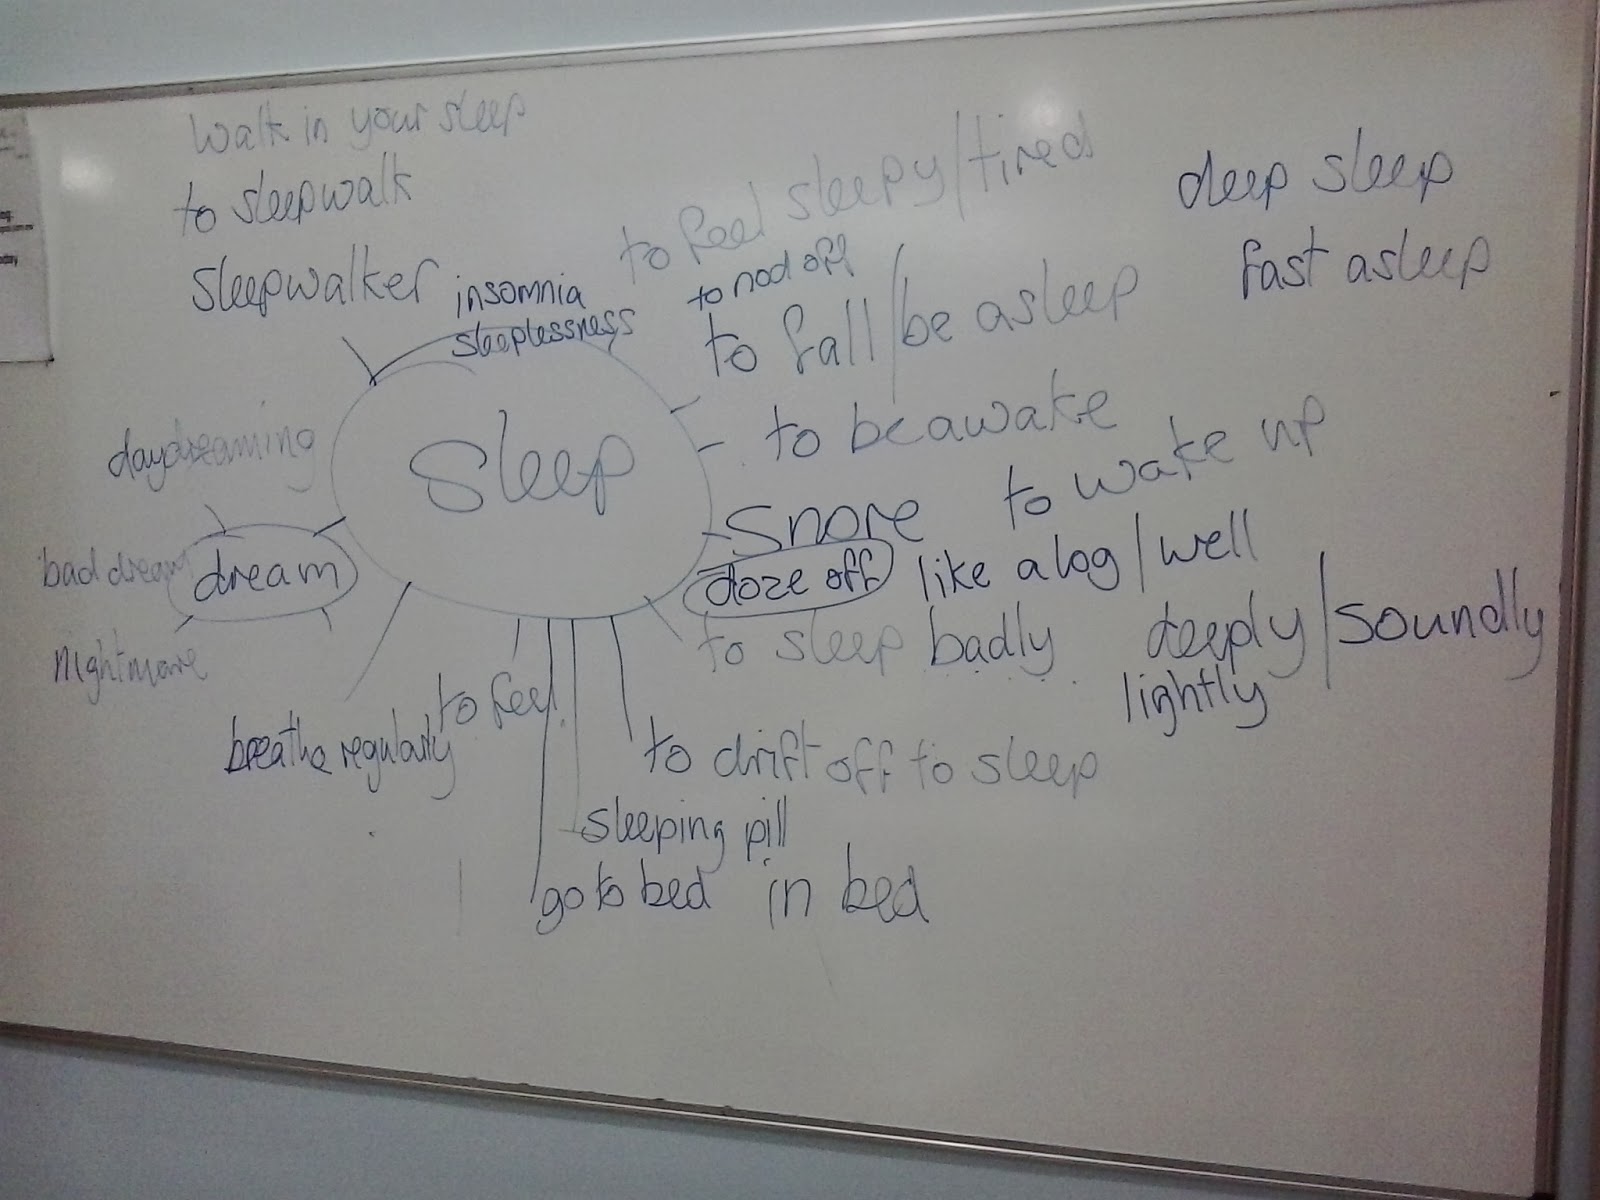 walk in your sleep
to sleepwalk
sleepwalker
insomnia
sleeplessness
to feel sleepy/tired
to nod off
to fall/be asleep
deep sleep
fast asleep
Sleep
to be awake
to wake up
snore
doze off
like a log/well
to sleep badly
deeply/soundly
lightly
daydreaming
bad dream
dream
nightmare
breathe regularly
to feel
to drift off to sleep
sleeping pill
go to bed in bed